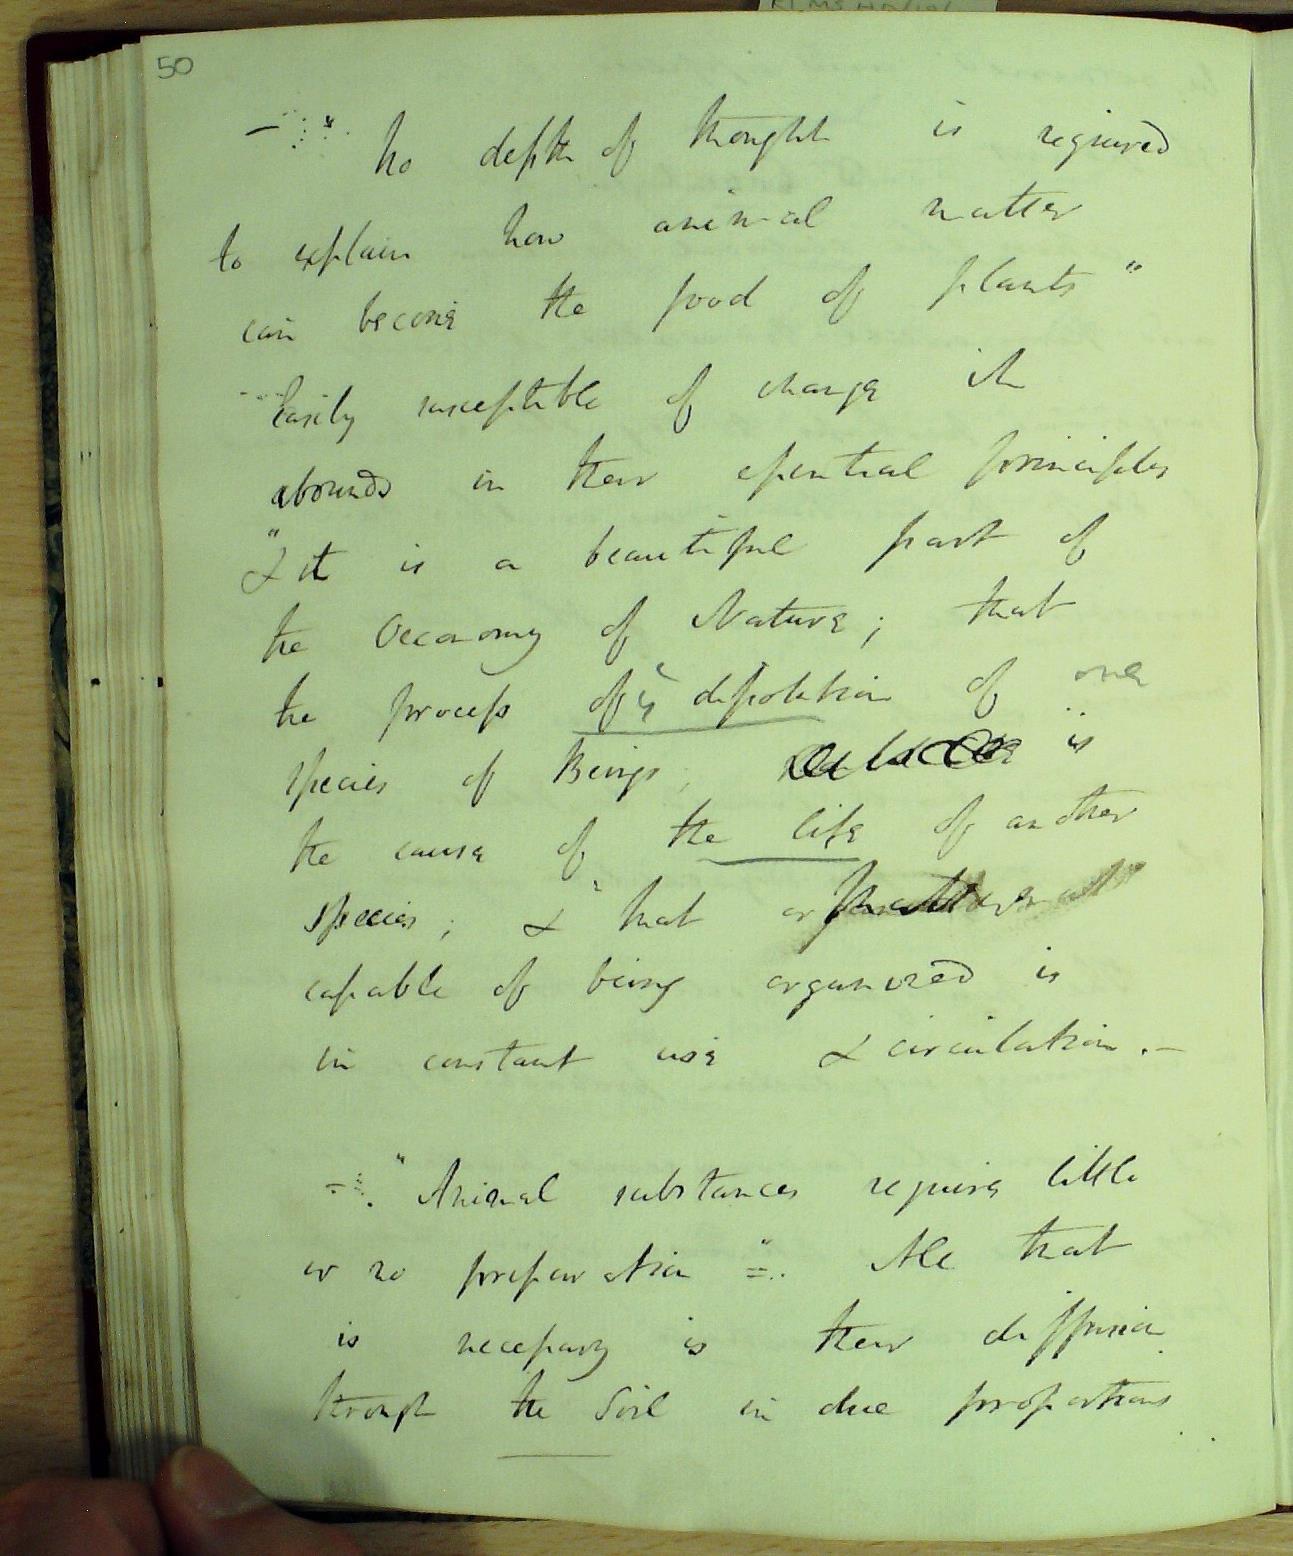 50
— " No depth of thought is required
to explain how animal matter
can become the food of plants"
Easily susceptible of change it
abounds in their essential principles
"& it is a beautiful part of
the Oeconomy of Nature; that
the process of dissolution of one
species of Beings, is
the cause of the life of another
species; & that
capable of being organized is
in constant use & circulation. —
— " Animal substances require little
or no preparation " = . All that
is necessary is their diffusion
through the Soil in due proportions